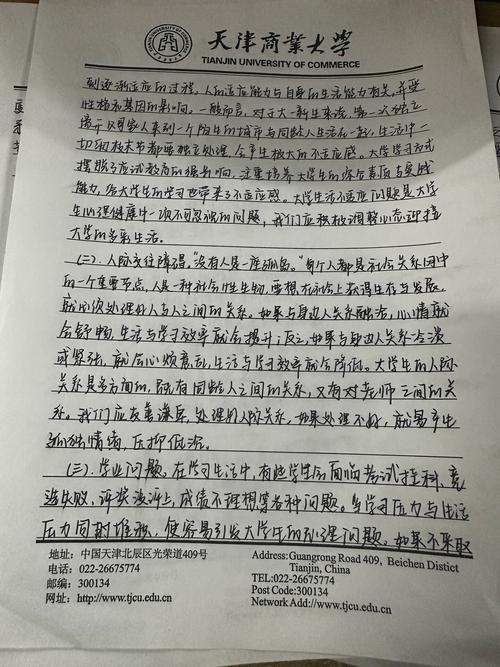 天津商業大學
TIANJIN UNIVERSITY OF COMMERCE
到逐渐适应的过程。人的适应能力与自身的生活能力相关,并受
性格和基因的影响。一般而言,对于大一新生来说,第一次独立
离开父母家人来到一个陌生的城市与同龄人生活在一起,生活中一
切细枝末节都要独立处理,会产生极大的不适应感。大学学习方式
摆脱了应试教育的强影响,注重培养大学生的综合素质与实践
能力,给大学生的学习也带来了不适应感。大学生活不适应问题是大学
生心理健康中一项不可忽视的问题,我们应积极调整心态迎接
大学的多彩生活。
(二)、人际交往障碍。"没有人是一座孤岛。"每个人都是社会关系网中
的一个重要节点,人是一种社会性生物,要想在社会上获得生存与发展,
就必须处理好人与人之间的关系。如果与身边人关系融洽,心情就
会舒畅,生活与学习效率就会提升;反之,如果与身边人关系冷淡
或紧张,就会心烦意乱,生活与学习效率就会降低。大学生的人际
关系是多方面的,既有同龄人之间的关系,又有对老师之间的关
系。我们应友善谦虚,处理好人际关系。如果处理不好,就易产生
孤独情绪,压抑低沉。
(三)、学业问题。在学习生活中,有些学生会面临考试挂科、竞
选失败、评奖没评上,成绩不理想等各种问题。当学习压力与生活
压力同时堆积,便容易引发大学生的心理问题。如果不采取
地址:中国天津北辰区光荣道409号
电话:022-26675774
邮编:300134
网址:http://www.tjcu.edu.cn
Address:Guangrong Road 409, Beichen Distict
Tianjin, China
TEL:022-26675774
Post Code:300134
Network Add://www.tjcu.edu.cn